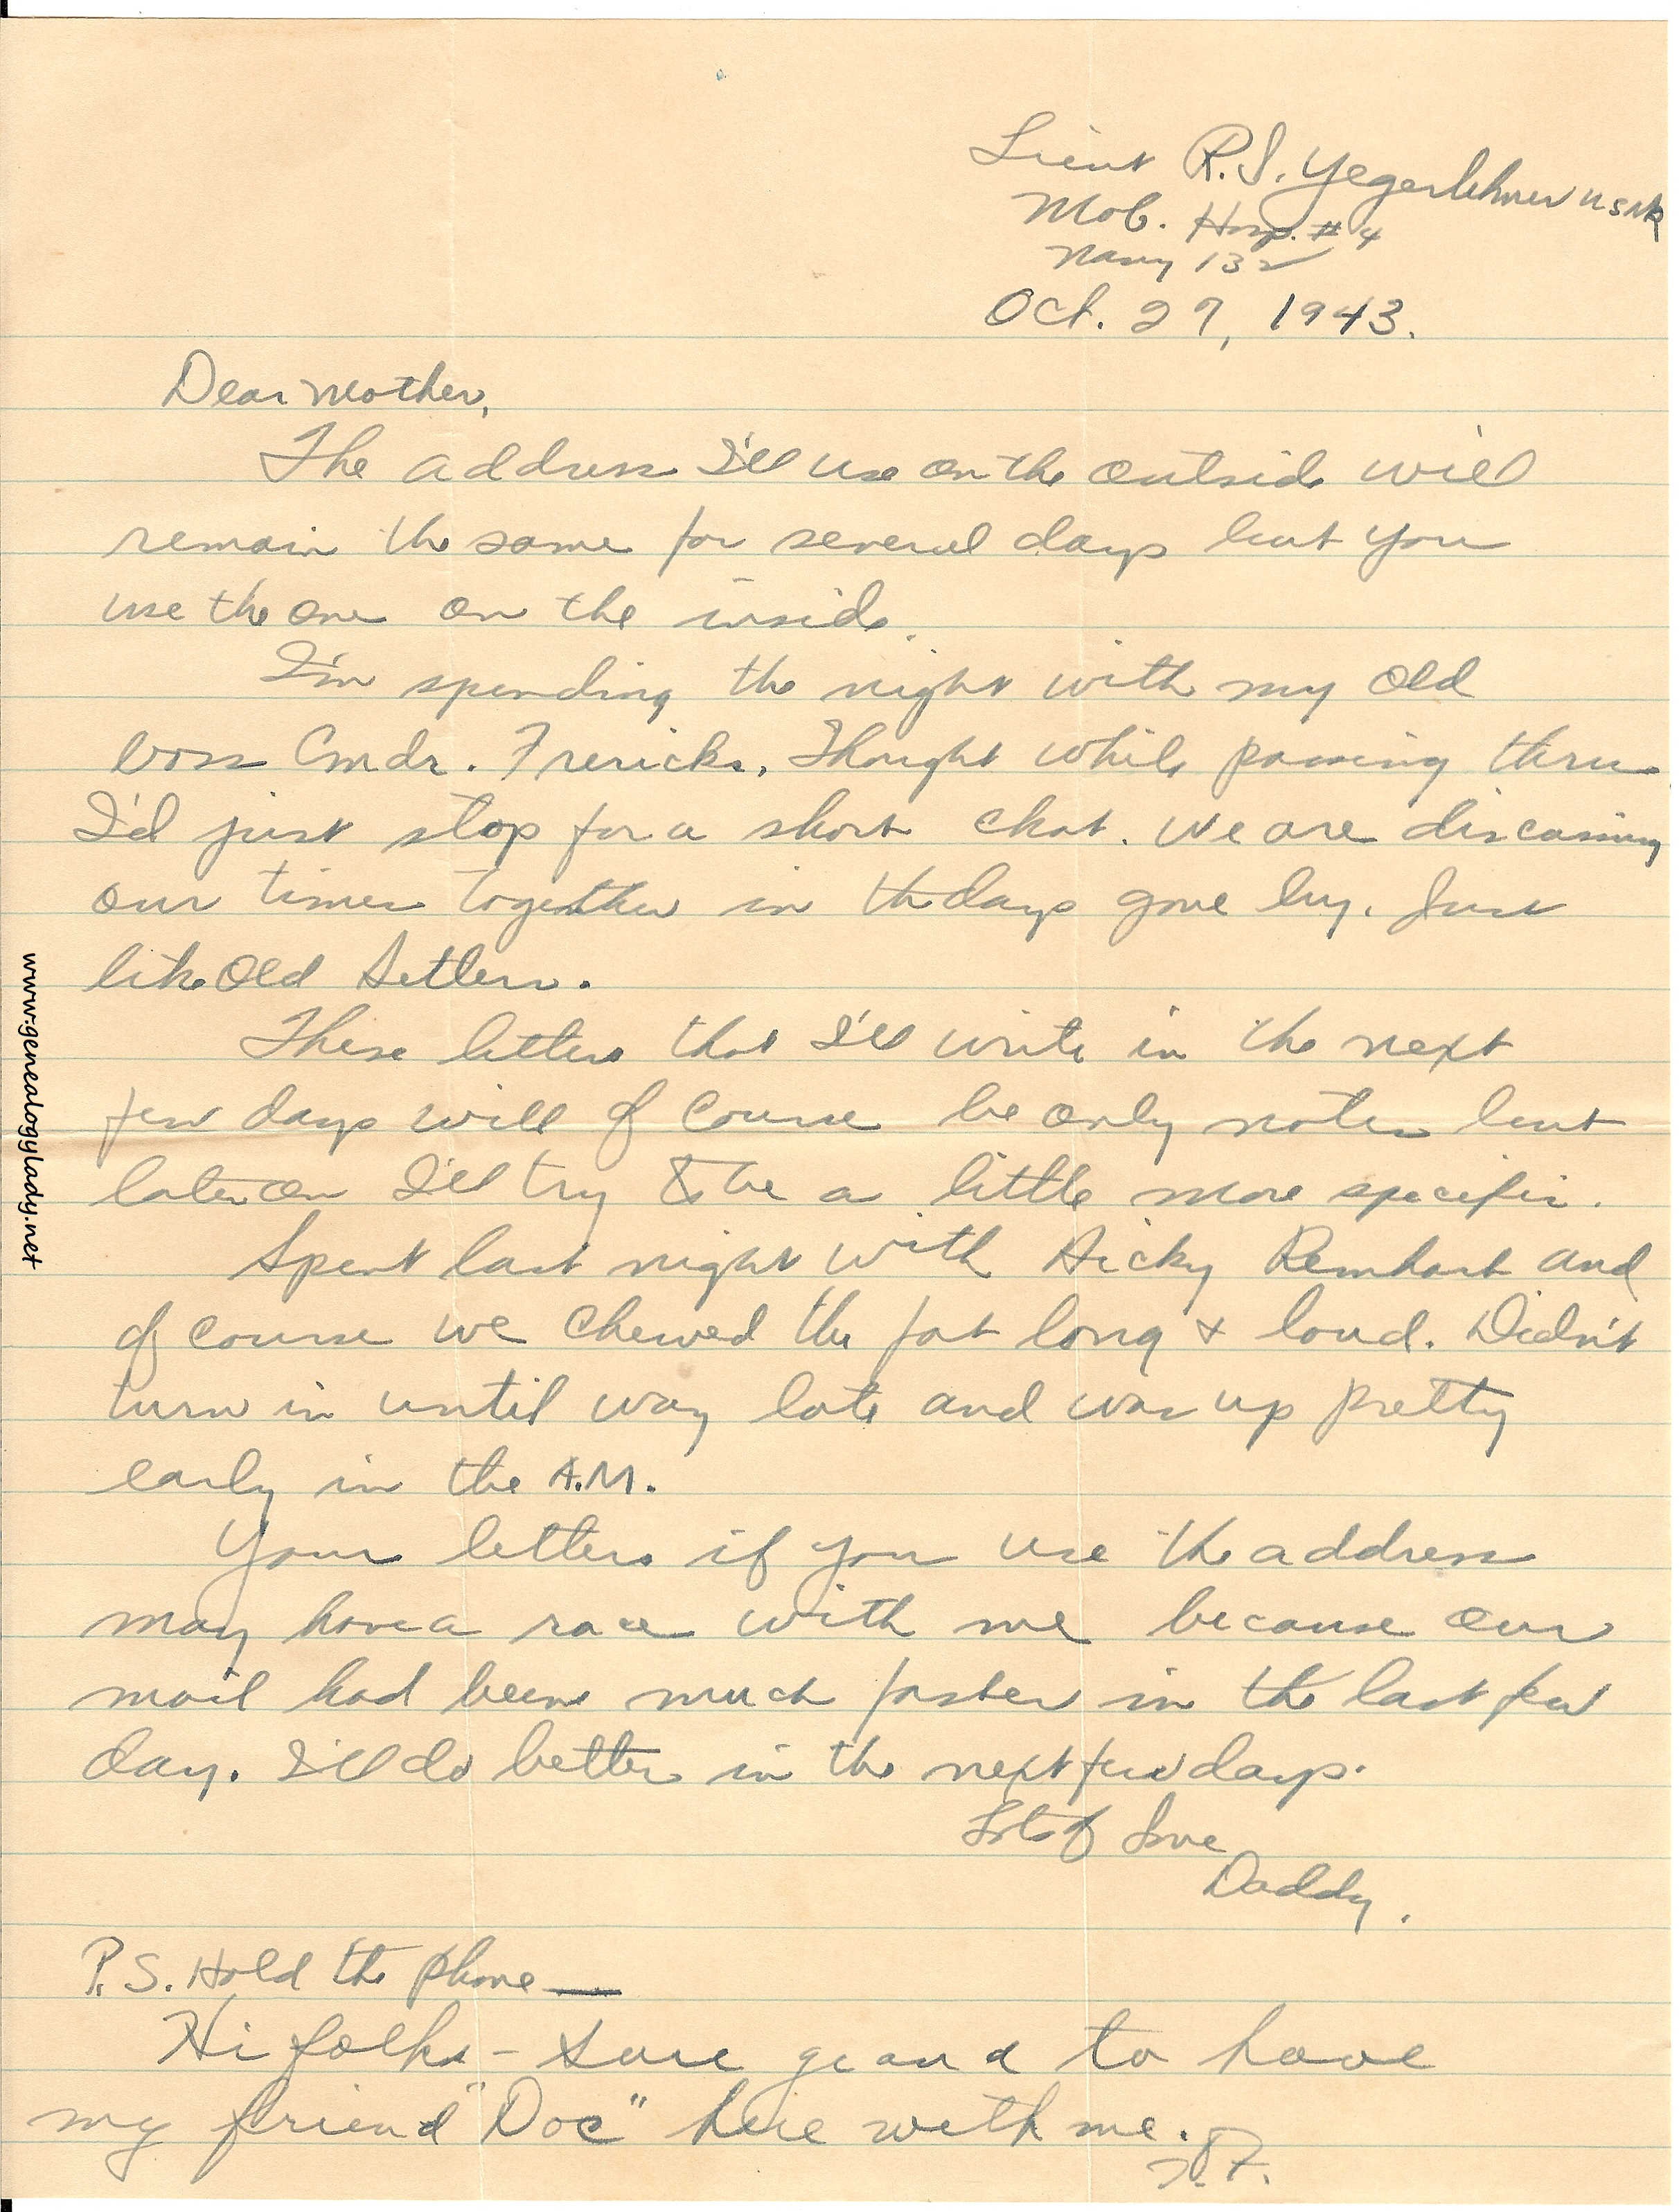 Lieut R.S. Yegerlehner USNR
Mob. Hosp. #4
Navy 132
Oct. 27, 1943.
Dear Mother,
The address I'll use on the outside will
remain the same for several days but you
use the one on the inside.
I'm spending the night with my old
boss Cmdr. Frericks. Thought while passing thru
I'd just stop for a short chat. We are discussing
our times together in the days gone by. Just
like Old Setlers.
These letters that I'll write in the next
few days will of course be only notes but
later on I'll try to be a little more specific.
Spent last night with Hicky Remhart and
of course we chewed the fat long & loud. Didn't
turn in until way late and was up pretty
early in the A.M.
Your letters if you use the address
may have a race with me because our
mail had been much faster in the last few
day. I'll do better in the next few days.
Lots of Love
Daddy.
P.S. Hold the phone —
Hi folks – Sure grand to have
my friend "Doc" here with me.
www.genealogylady.net